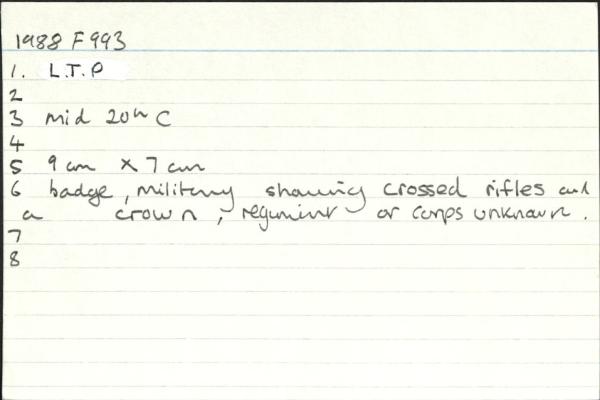 1988 F993
1. L.T.P
2
3 mid 20th C
4
5 9cm x 7cm
6 badge, military showing crossed rifles and
a crown, regiment or corps unknown.
7
8